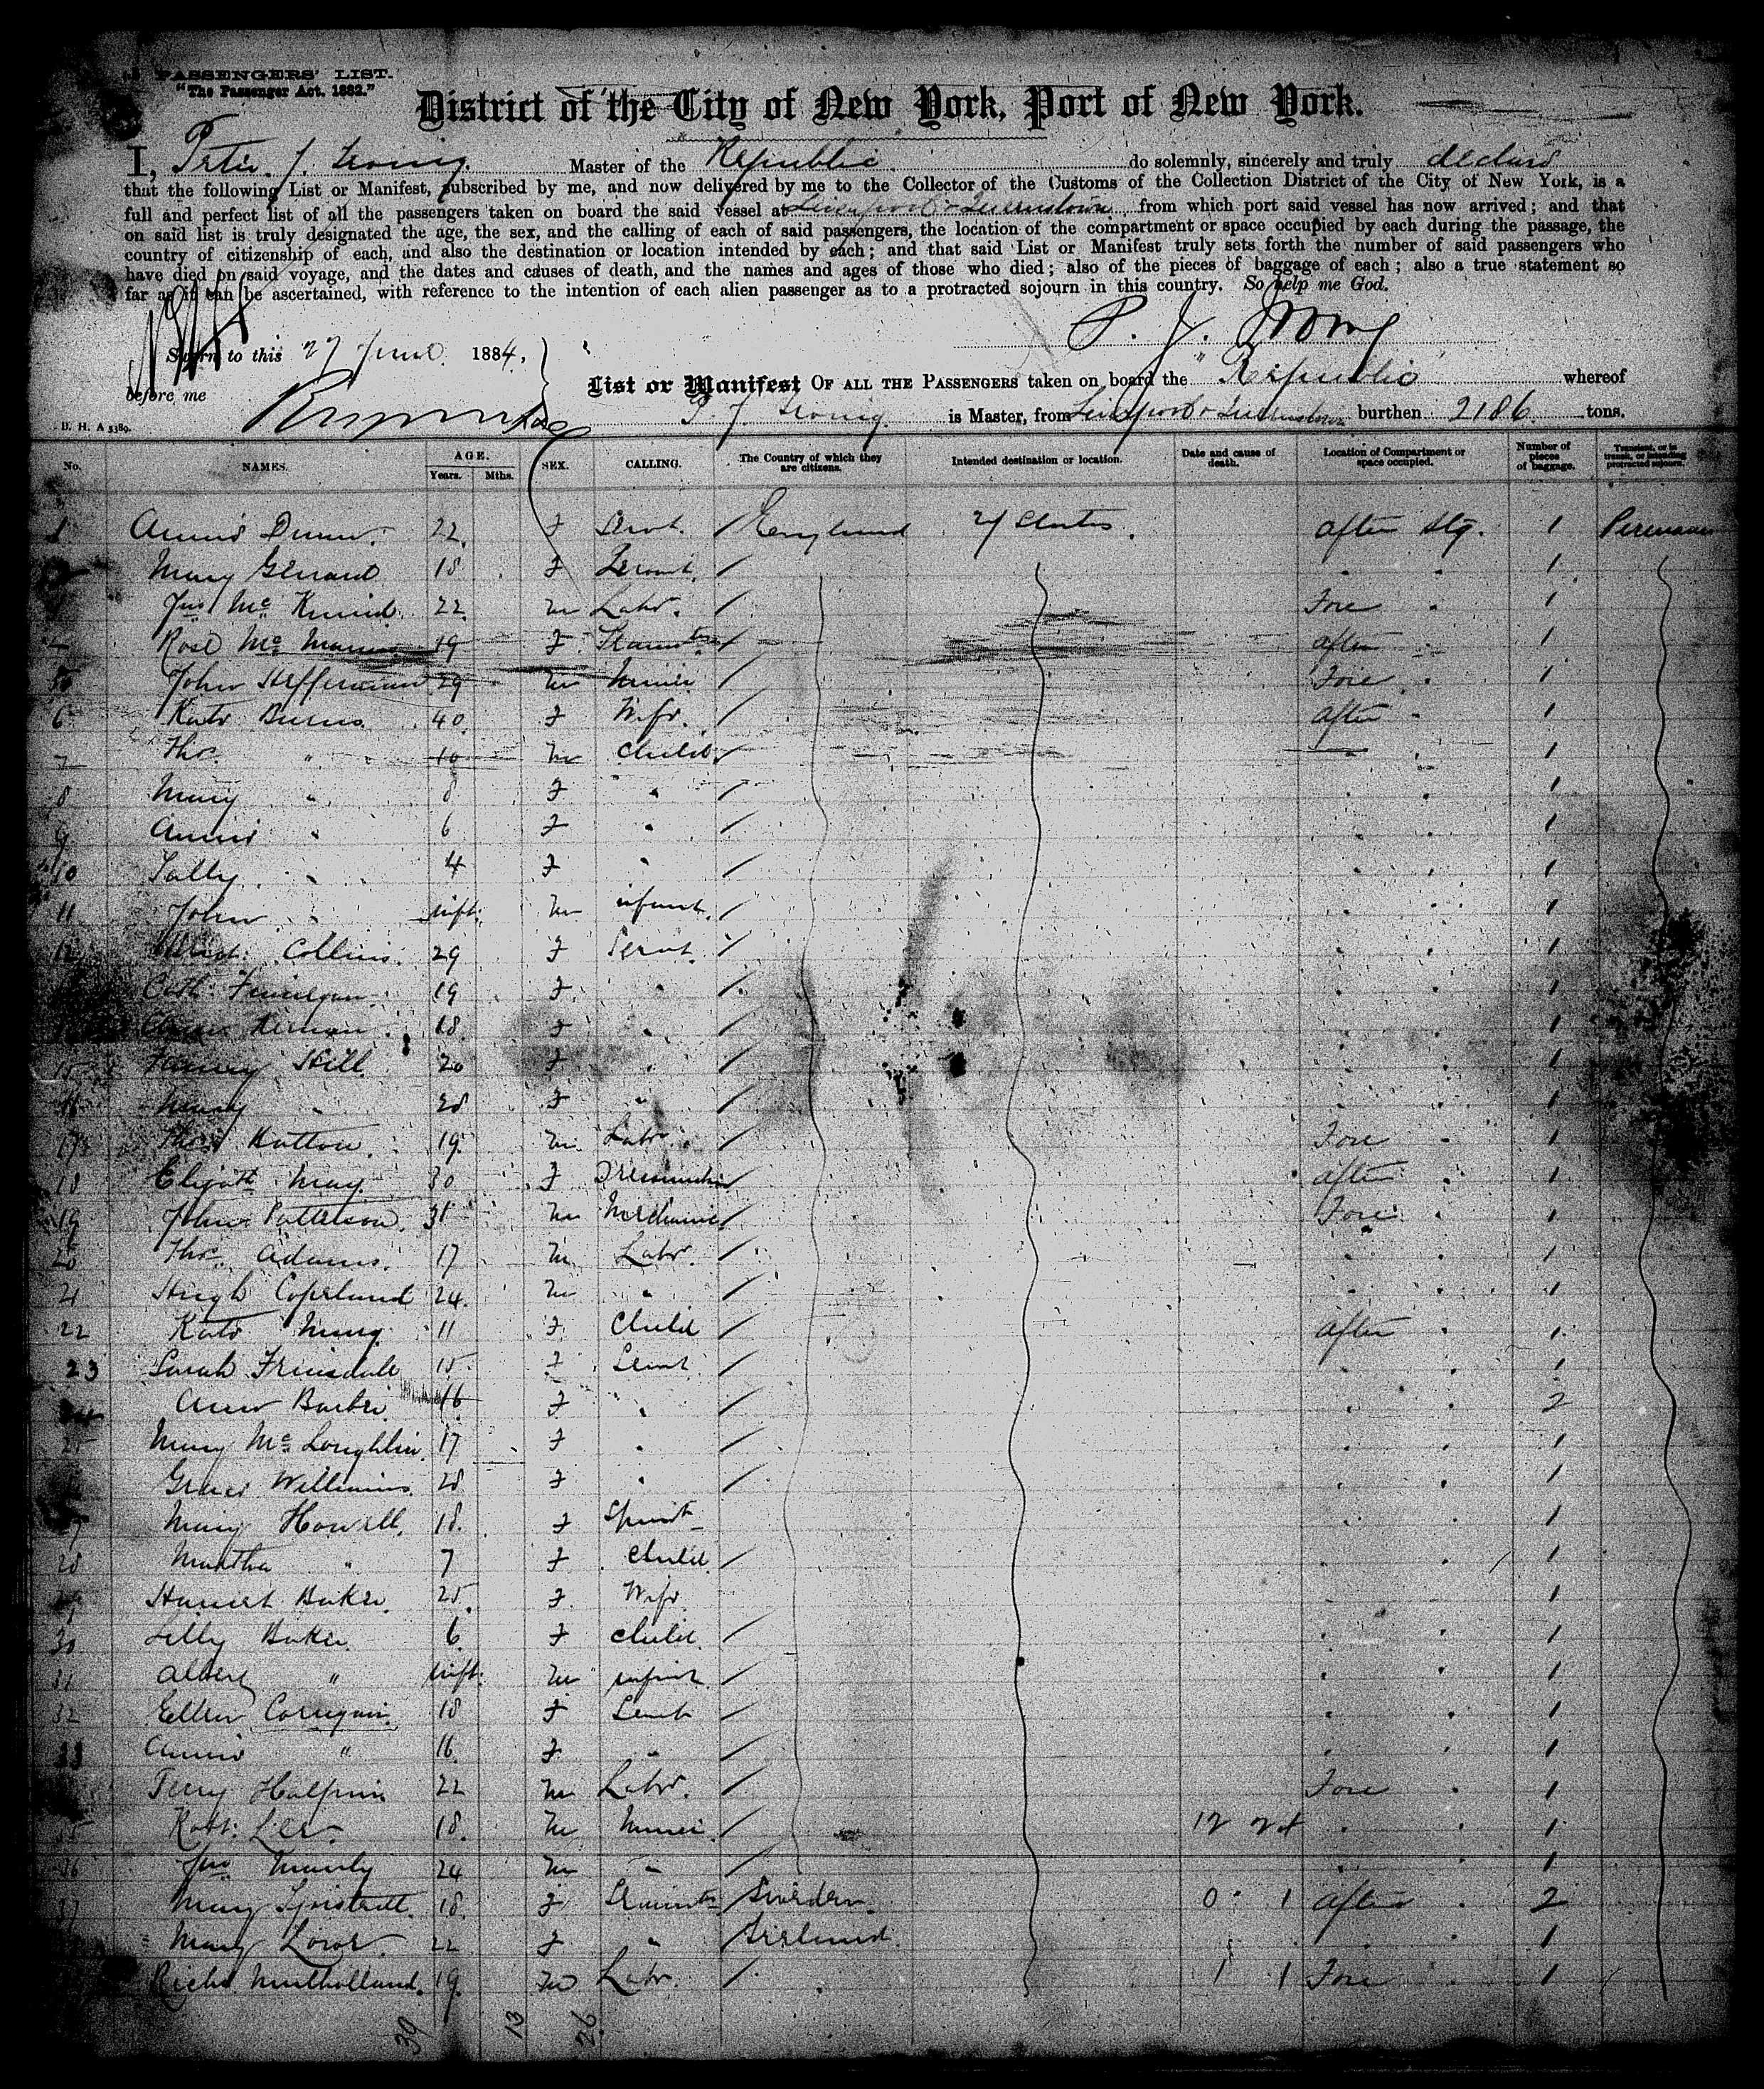 PASSENGERS' LIST.
"The Passenger Act, 1882."
District of the City of New York, Port of New York.
I, Peter J. Irving Master of the Republic do solemnly, sincerely and truly declare
that the following List or Manifest, subscribed by me, and now delivered by me to the Collector of the Customs of the Collection District of the City of New York, is a
full and perfect list of all the passengers taken on board the said vessel at Liverpool & Queenstown from which port said vessel has now arrived; and that
on said list is truly designated the age, the sex, and the calling of each of said passengers, the location of the compartment or space occupied by each during the passage, the
country of citizenship of each, and also the destination or location intended by each; and that said List or Manifest truly sets forth the number of said passengers who
have died on said voyage, and the dates and causes of death, and the names and ages of those who died; also of the pieces of baggage of each; also a true statement so
far as it can be ascertained, with reference to the intention of each alien passenger as to a protracted sojourn in this country. So help me God.
P. J. Irving
Sworn to this 27 June 1884,
before me
List or Manifest OF ALL THE PASSENGERS taken on board the "Republic whereof
P. J. Irving is Master, from Liverpool & Queenstown burthen 2186 tons.
B. H. A 5389.
No. NAMES. AGE. Years. Mths. SEX. CALLING. The Country of which they are citizens. Intended destination or location. Date and cause of death. Location of Compartment or space occupied. Number of pieces of baggage. Transient, or in transit, or intending protracted sojourn.
1 Annie Dunn 22 F Servt. England U States after Stg. 1
Mary Gerard 18 F Servt. / 1
Jno Mc 22 M Labr. / Fore " 1
Rose Mc 19 F / after 1
John Heffernan 29 M Miner / Fore 1
6 Kate Burns 40 F Wife / after " 1
7 Thos. " 10 M Child / 1
8 Mary " 8 F " / 1
9 Annie " 6 F " / 1
10 Sally " 4 F " / 1
11 John " inft. M infant / 1
Collins 29 F Servt. / 1
Cath. Finnigan 19 F " / 1
Kernan 18 F " / 1
15 Fanny Hill 20 F " / 1
Mary " 28 F " / 1
17 Hutton 19 M Labr. / Fore " 1
18 Elizath May 30 F Dressmaker / after " 1
19 John Patteson 31 M Mechanic / Fore " 1
20 Thos. Adams 17 M Labr. / 1
21 Hugh Copeland 24 M " / 1
22 Kate May 11 F Child / after " 1
23 Sarah 15 F Servt / 1
24 Ann Barber 16 F " / 2
25 Mary Mc Loughlin 17 F " / 1
Grace Williams 28 F " / 1
27 Mary Howell 18 F Spinstr 1
28 Martha " 7 F Child / 1
29 Harriet Baker 25 F Wife 1
30 Lilly Baker 6 F child / 1
31 Albert " inft. M infant / 1
32 Ellen Corrigan 18 F Servt / 1
33 Annie " 16 F " / 1
Terry Halpin 22 M Labr. / Fore " 1
35 Robt. Lee 18 M Miner / 12 24 " 1
36 Jno Manly 24 M " / 1
37 Mary 18 F Sweden 0 1 after " 2
Mary 22 F " Ireland 1
Richd Mulholland 19 M Labr. / 1 1 Fore " 1
39 13 26